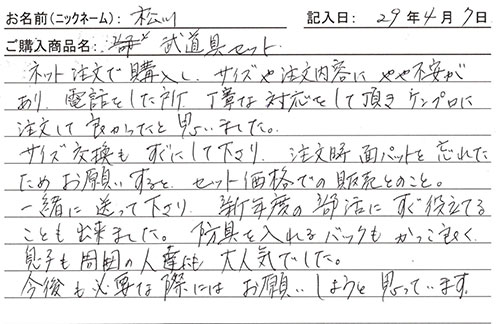 お名前(ニックネーム): 松川 記入日: 29年4月7日
ご購入商品名: 武道具セット
ネット注文で購入し、サイズや注文内容にやや不安が
あり、電話をした所、丁寧な対応をして頂きケンプロに
注文して良かったと思いました。
サイズ交換もすぐにして下さり、注文時面パットを忘れた
ためお願いすると、セット価格での販売とのこと。
一緒に送って下さり、新年度の部活にすぐ役立てる
ことも出来ました。防具を入れるバックもかっこ良く、
息子も周囲の人達にも大人気でした。
今後も必要な際にはお願いしようと思っています。